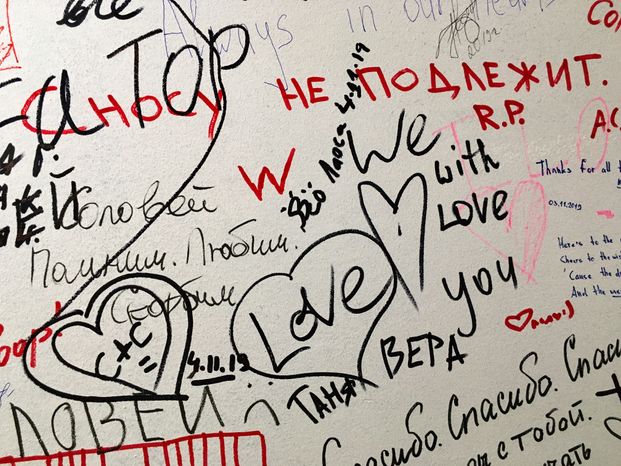 Always in our hearts
ТОР
Сносу НЕ ПОДЛЕЖИТ.
R.P.
We
with
LOVE
you
W
4.11.19
Соловей
Помним. Любим.
Скорбим
Thanks for all t
03.11.2019
Here's to the
'Cause the d
And the
Love
C+C
4.11.19
ЛОВЕЙ
ТАНЯ
ВЕРА
Спасибо. Спасибо. Спасибо. Спаси
с тобой.